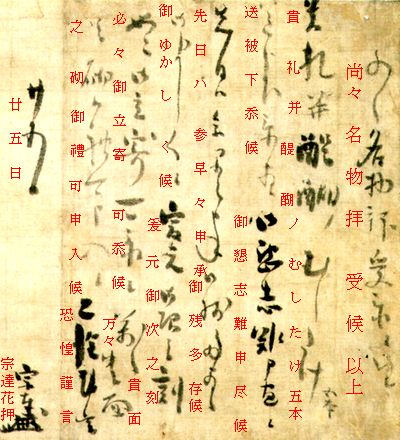 尚々名物拝受候以上
貴礼并醍醐ノむしたけ五本
送被下忝候 御懇志難申尽候
先日ハ参早々申承 御残多存候
御ゆかしく候 爰元御次之刻
必々御立寄可忝候 万々貴面
之砌御禮可申入候 恐惶謹言
廿五日
宗達花押